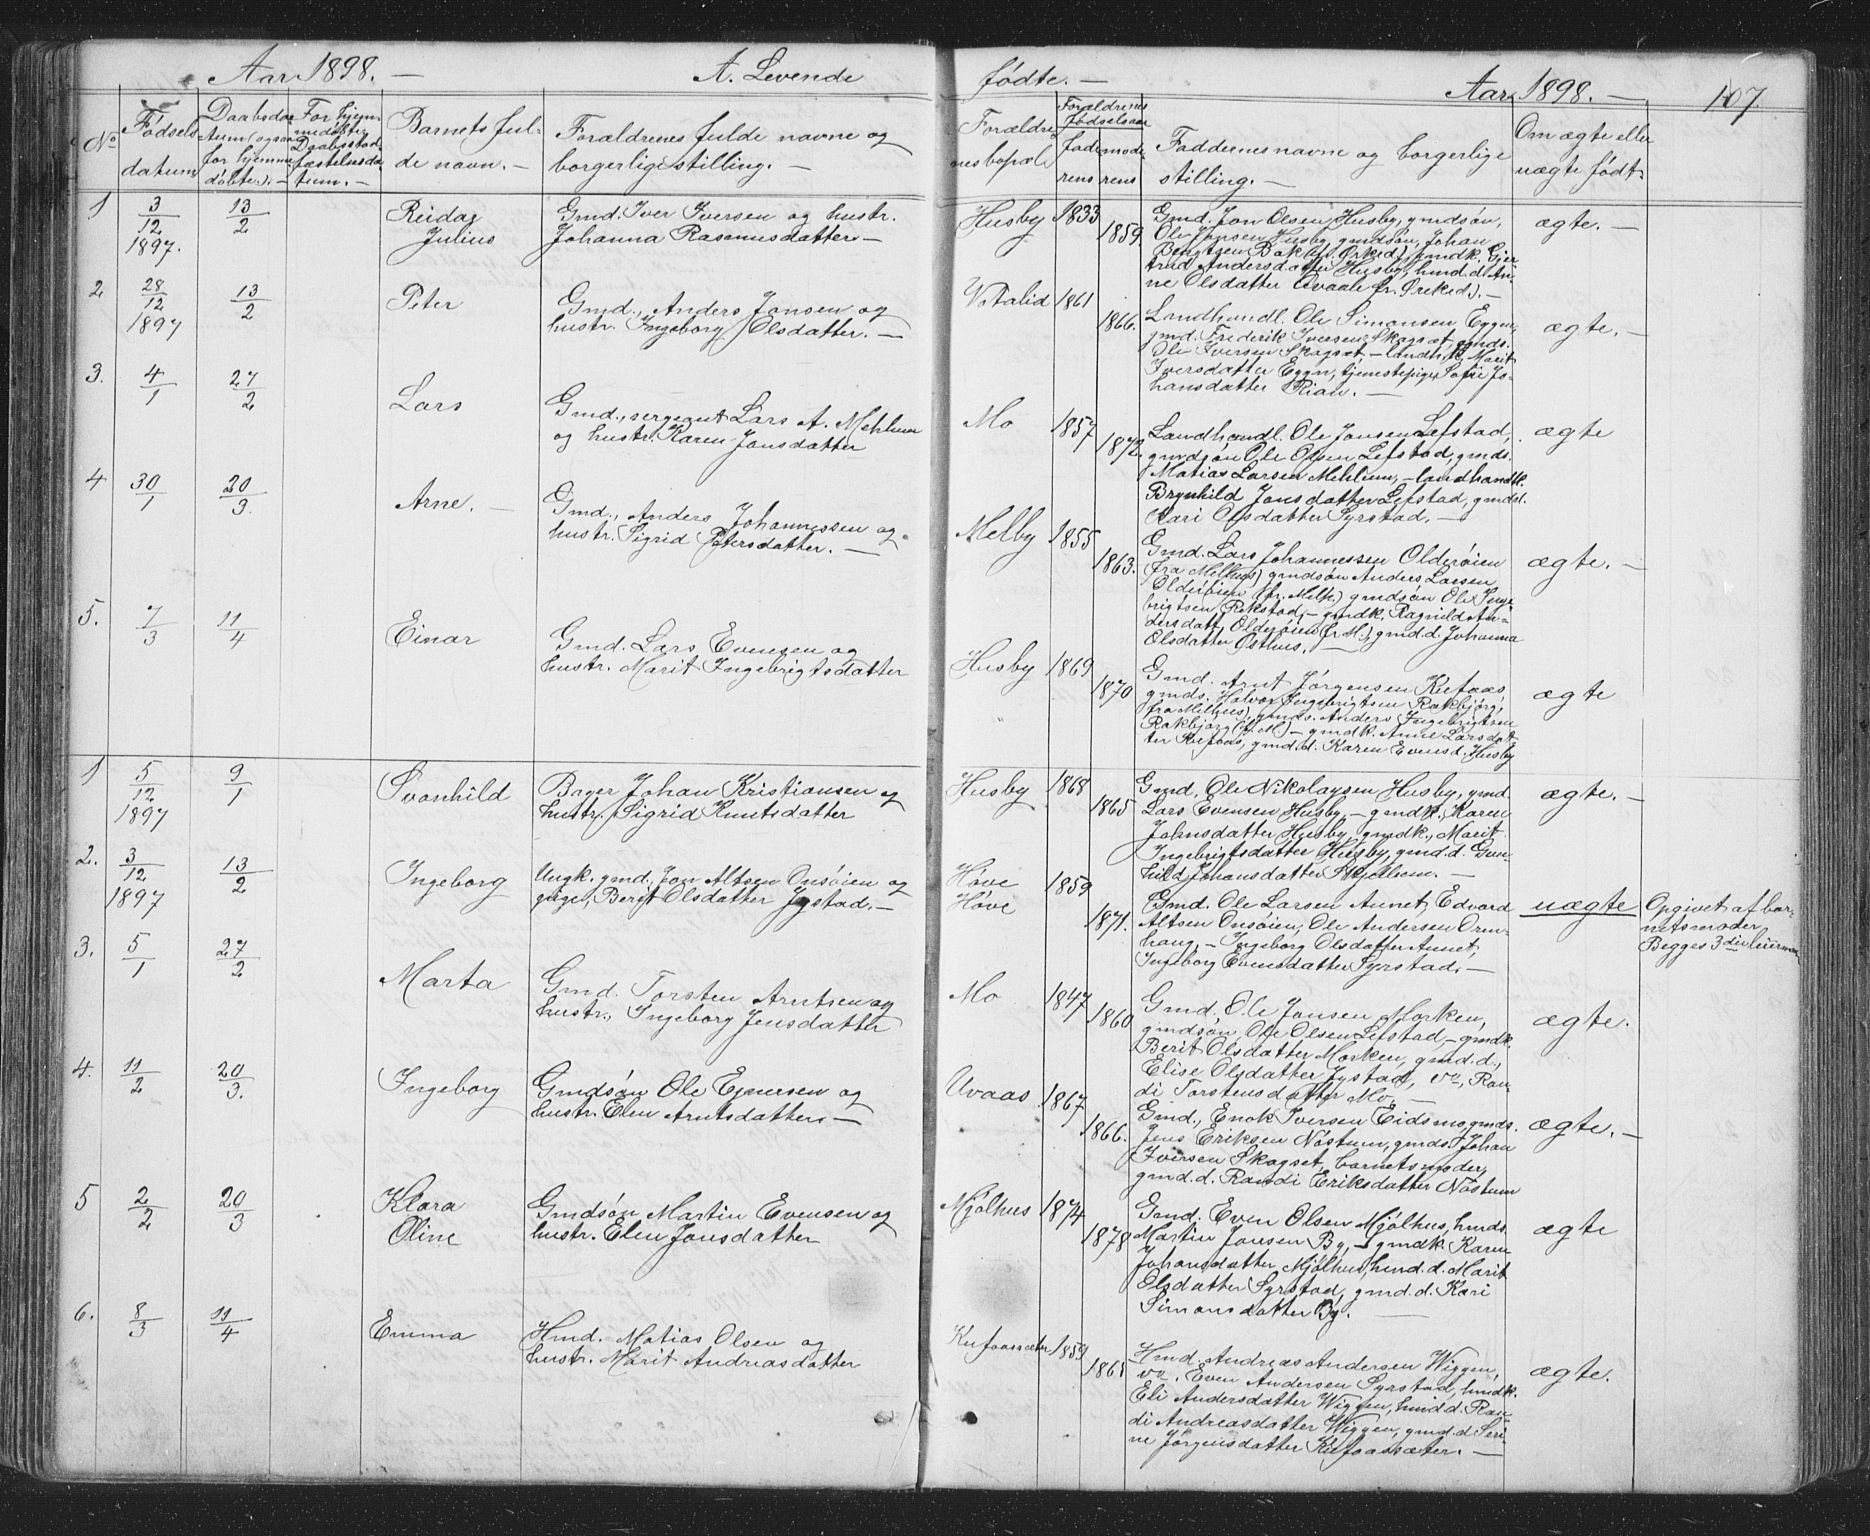 Aar 1898. — A. Levende
fødte. — Aar 1898. — 107
No
Fødsels
datum
Daabsda-
tum (ogsaa
for hjemme
døbte). —
For hjem-
medøbte
Daabsstad-
fæstelsesda-
tum. —
Barnets ful-
de navn. —
Forældrenes fulde navne og
borgerlige stilling. —
Forældre-
nes bopæl
Forældrenes
fødselsaar
fade-
rens
mode-
rens
Faddernes navne og borgerlige
stilling. —
Om ægte eller
uægte født
1
3/12 1897.
13/2
Reidar
Julius
Gmd. Iver Iversen og hustr.
Johanna Rasmusdatter —
Husby
1833
1859.
Gmd. Jon Olsen Husby, gmdsøn,
Ole Jonsen Husby, gmdsøn, Johan
Bengtsen Bakli, Ørked.), gmdk. Gjer-
trud Andersdatter Husby, hmd.d. An-
ne Olsdatter Qvaale fr. Ørked). —
ægte. —
2
28/12 1897
13/2
Peter
Gmd., Anders Jonsen og
hustr. Ingeborg Olsdatter. —
Votalid
1861
1866.
Landhandl. Ole Simonsen Eggen,
gmd. Frederik Iversen Skagset, gmds.
Ole Iversen Skogset, — landh.k. Marit
Iversdatter Eggn, tjenestepige Sofie Jo-
hansdatter Rian. —
ægte. —
3.
4/1
27/2
Lars
Gmd., sergeant Lars A. Mehlum
og hustr. Karen Jonsdatter
Mo
1857
1872.
Landhandl. Ole Jonsen Lefstad,
gmdsøn Ole Olsen Lefstad, gmds.
Matias Larsen Mehlum, — landhandk.
Brynhild Jonsdatter Lefstad, gmdd.
Kari Olsdatter Syrstad. —
ægte
4
30/1
20/3.
Arne. —
Gmd., Anders Johannessen og
hustr. Sigrid Petersdatter. —
Melby
1855
1863.
Gmd. Lars Johannessen Olderøien
(fra Melhus) gmdsøn Anders Larsen
Olderøien (fr. Melh.) gmdsøn Ole Inge-
brigtsen Rekstad, — gmdk. Ragnild An-
dersdatt. Olderøien (fr. M.), gmd.d. Johanna
Olsdatter Østhus. —
ægte. —
5.
7/3
11/4
Einar
Gmd. Lars Evensen og
hustr. Marit Ingebrigtsdatter
Husby
1869
1870
Gmd. Arnt Jørgensen Kufaas,
gmds. Halvor Ingebrigtsen Rakbjørg,
(fra Melhus) gmds. Anders Ingebrigtsen
Rakbjørg (fr. M) — gmdk. Anne Larsdat-
ter Kufaas, gmd.d. Karen Evensd. Husby
ægte
1
5/12 1897
9/1
Svanhild
Bager Johan Kristiansen og
hustr. Sigrid Knutsdatter
Husby
1868
1865
Gmd. Ole Nikolaysen Husby, gmd.
Lars Evensen Husby, — gmdk. Karen
Johnsdatter Husby, gmdk., Marit
Ingebrigtsdatter Husby, gmd.d. Gun-
hild Johansdatter Mjølhem. —
ægte. —
2.
3/12 1897
13/2
Ingeborg
Ungk. gmd. Jon Altsen Onsøien og
pige, Berit Olsdatter Jystad. —
Høve
Høve
1859
1871.
Gmd. Ole Larsen Aunet, Edvard
Altsen Onsøien, Ole Andersen Oren-
haug, — Ingeborg Olsdatter Aunet,
Ingeborg Evensdatter Syrstad. —
uægte
Opgivet af bar-
netsmoder
Begges 3die leiermaal
3.
5/1
27/2
Marta
Gmd. Torsten Arntsen og
hustr., Ingeborg Jensdatter
Mo
1847
1860
Gmd. Ole Jonsen Morken,
gmdsøn, Ole Olsen Lefstad, — gmdk.
Berit Olsdatter Morken, gmd.d.,
Elise Olsdatter Jystad, do, Ran-
di Torstensdatter Mo. —
ægte.
4.
11/2
20/3.
Ingeborg
Gmdsøn Ole Ejnersen og
hustr. Elen Arntsdatter —
Uvaas
1867
1866.
Gmd., Enok Iversen Eidsmo, gmds.
Jens Eriksen Nostum, gmds. Johan
Iversen Skogset, barnets moder,
gmd.d. Randi Eriksdatter Nostum
ægte. —
5
2/2
20/3
Klara
Oline
Gmdsøn Martin Evensen og
hustr. Elen Jonsdatter
Mjølhus
1874
1878
Gmd. Even Olsen Mjølhus, hmds.
Martin Jonsen By, — gmdk. Karen
Johansdatter Mjølhus, hmd.d. Marit
Olsdatter Syrstad, gmd.d. Kari
Simonsdatter By.
ægte
6.
8/3
11/4
Emma
Hmd. Matias Olsen og
hustr. Marit Andreasdatter
Kufaassæter
1859
1865
Hmd. Andreas Andersen Wiggen,
do, Even Andersen Syrstad, hmdk.
Eli Andersdatter Wiggen, hmd.d. Ran-
di Andreasdatter Wiggen, gmd.d. Seri-
ne Jørgensdatter Kufaassæter. —
ægte.